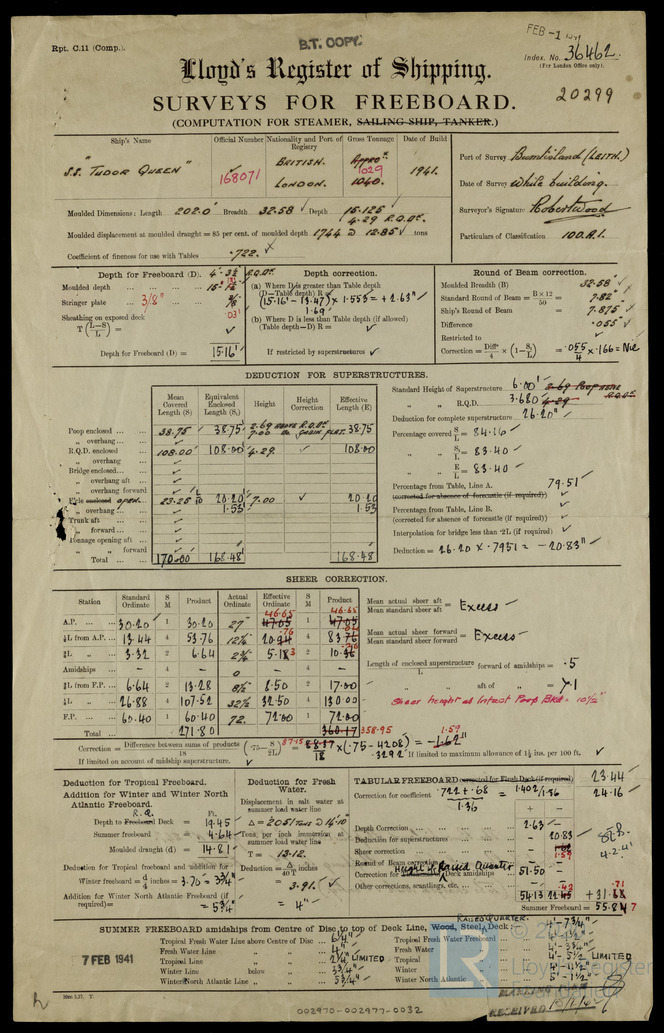 FEB -1 1941
Rpt. C.11 (Comp.).
B.T. COPY.
Index. No. 36462.
(For London Office only).
Lloyd's Register of Shipping.
20299
SURVEYS FOR FREEBOARD.
(COMPUTATION FOR STEAMER, SAILING SHIP, TANKER.)
Ship's Name Official Number Nationality and Port of Registry Gross Tonnage Date of Build
S.S. "TUDOR QUEEN" 168071 BRITISH. LONDON. Appro. 1029 1040. 1941.
Port of Survey Burntisland (LEITH.)
Date of Survey While building.
Surveyor's Signature
Particulars of Classification 100.A.1.
Moulded Dimensions: Length 202.0 Breadth 32.58 Depth 15.125 4.29 R.Q.DK.
Moulded displacement at moulded draught = 85 per cent. of moulded depth 1744 @ 12.85 tons
Coefficient of fineness for use with Tables .722.
Depth for Freeboard (D). 4'-3½ R.Q.DK.
Moulded depth
Stringer plate 3/8"
Sheathing on exposed deck
T (L-S/L) =
Depth for Freeboard (D) = 15.16'
Depth correction.
(a) Where D is greater than Table depth
(D-Table depth) R
(15.16 - 13.47) × 1.553 = + 2.63"
1.69'
(b) Where D is less than Table depth (if allowed)
(Table depth-D) R =
If restricted by superstructures
Round of Beam correction.
Moulded Breadth (B) 32.58'
Standard Round of Beam = B×12/50 = 7.82"
Ship's Round of Beam = 7.875"
Difference .055
Restricted to
Correction = Diff/4 × (1-S₁/L) = .055/4 × .166 = Nil
DEDUCTION FOR SUPERSTRUCTURES.
Mean Covered Length (S) Equivalent Enclosed Length (S₁) Height Height Correction Effective Length (E)
Poop enclosed 38.75 38.75 2.69 above R.Q.DK. 7.00 38.75
„ overhang
R.Q.D. enclosed 108.00 108.00 4.29 108.00
„ overhang
Bridge enclosed
„ overhang aft
„ overhang forward
F'cle enclosed open 23.25 20.20 7.00 20.20
„ overhang 1.53 1.53
Trunk aft
„ forward
Tonnage opening aft
„ „ forward
Total 170.00 168.48 168.48
Standard Height of Superstructure 6.00' 2.69 Poop
„ „ R.Q.D. 3.680' 4.29 R.Q.DK.
Deduction for complete superstructure 26.20"
Percentage covered S/L = 84.16
„ „ S₁/L = 83.40
„ „ E/L = 83.40
Percentage from Table, Line A. 79.51
(corrected for absence of forecastle (if required))
Percentage from Table, Line B.
(corrected for absence of forecastle (if required))
Interpolation for bridge less than ·2L (if required)
Deduction = 26.20 × .7951 = - 20.83"
SHEER CORRECTION.
Station Standard Ordinate S M Product Actual Ordinate Effective Ordinate S M Product
A.P. 30.20 1 30.20 27" 46.65 47.05 1 46.65 47.05
⅙L from A.P. 13.44 4 53.76 12⅛ 20.94 4 83.76
⅓L „ 3.32 2 6.64 2⅜ 5.18 2 10.36
Amidships - 4 - - - 4 -
⅓L from F.P. 6.64 2 13.28 8½ 8.50 2 17.00
⅙L „ 26.88 4 107.52 32½ 32.50 4 130.00
F.P. 60.40 1 60.40 72. 72.00 1 72.00
Total 271.80 360.17 358.95
Mean actual sheer aft / Mean standard sheer aft = Excess
Mean actual sheer forward / Mean standard sheer forward = Excess
Length of enclosed superstructure / L forward of amidships = .5
„ „ aft of „ = >.1
Sheer height at intact Poop Bkd = 10½"
Correction = Difference between sums of products / 18 (.75 - S/2L) = 87.15 88.37 / 18 × (.75 - .4208) = 1.59 -1.62"
.3292
If limited on account of midship superstructure.
If limited to maximum allowance of 1½ ins. per 100 ft.
Deduction for Tropical Freeboard.
Addition for Winter and Winter North Atlantic Freeboard.
R.Q. Ft.
Depth to Freeboard Deck = 19.45
Summer freeboard = 4.64
Moulded draught (d) = 14.81
Deduction for Tropical freeboard and addition for
Winter freeboard = d/4 inches = 3.70 = 3¾"
Addition for Winter North Atlantic Freeboard (if required) = = 5¾"
Deduction for Fresh Water.
Displacement in salt water at summer load water line
Δ = 2051 Tons @ 14'-10
Tons per inch immersion at summer load water line
T = 13.12.
Deduction = Δ/40T inches
= 3.91.
= 4"
TABULAR FREEBOARD corrected for Flush Deck (if required) 23.44
Correction for coefficient .722 + .68 / 1.36 = 1.402/1.36 24.16
+ -
Depth Correction 2.63 -
Deduction for superstructures - 20.83
Sheer correction - 1.62 1.59
Round of Beam correction - -
Correction for Height of Raised Quarter Deck amidships 51.50 -
Other corrections, scantlings, etc. - -
54.13 22.45 .42 + 31.68 .71
Summer Freeboard = 55.84 7
4.2.41
SUMMER FREEBOARD amidships from Centre of Disc to top of Deck Line, Wood, Steel, Deck: RAISED QUARTER. 4'-7¾"
7 FEB 1941
Tropical Fresh Water Line above Centre of Disc 6¼"
Fresh Water Line „ „ 4"
Tropical Line „ „ 2¼" LIMITED
Winter Line below „ 3¾"
Winter North Atlantic Line „ „ 5¾"
Tropical Fresh Water Freeboard
Fresh Water „ 4'-3¾"
Tropical „ 4'-5½ LIMITED
Winter „
Winter North Atlantic „
RECEIVED
002970-002977-0032